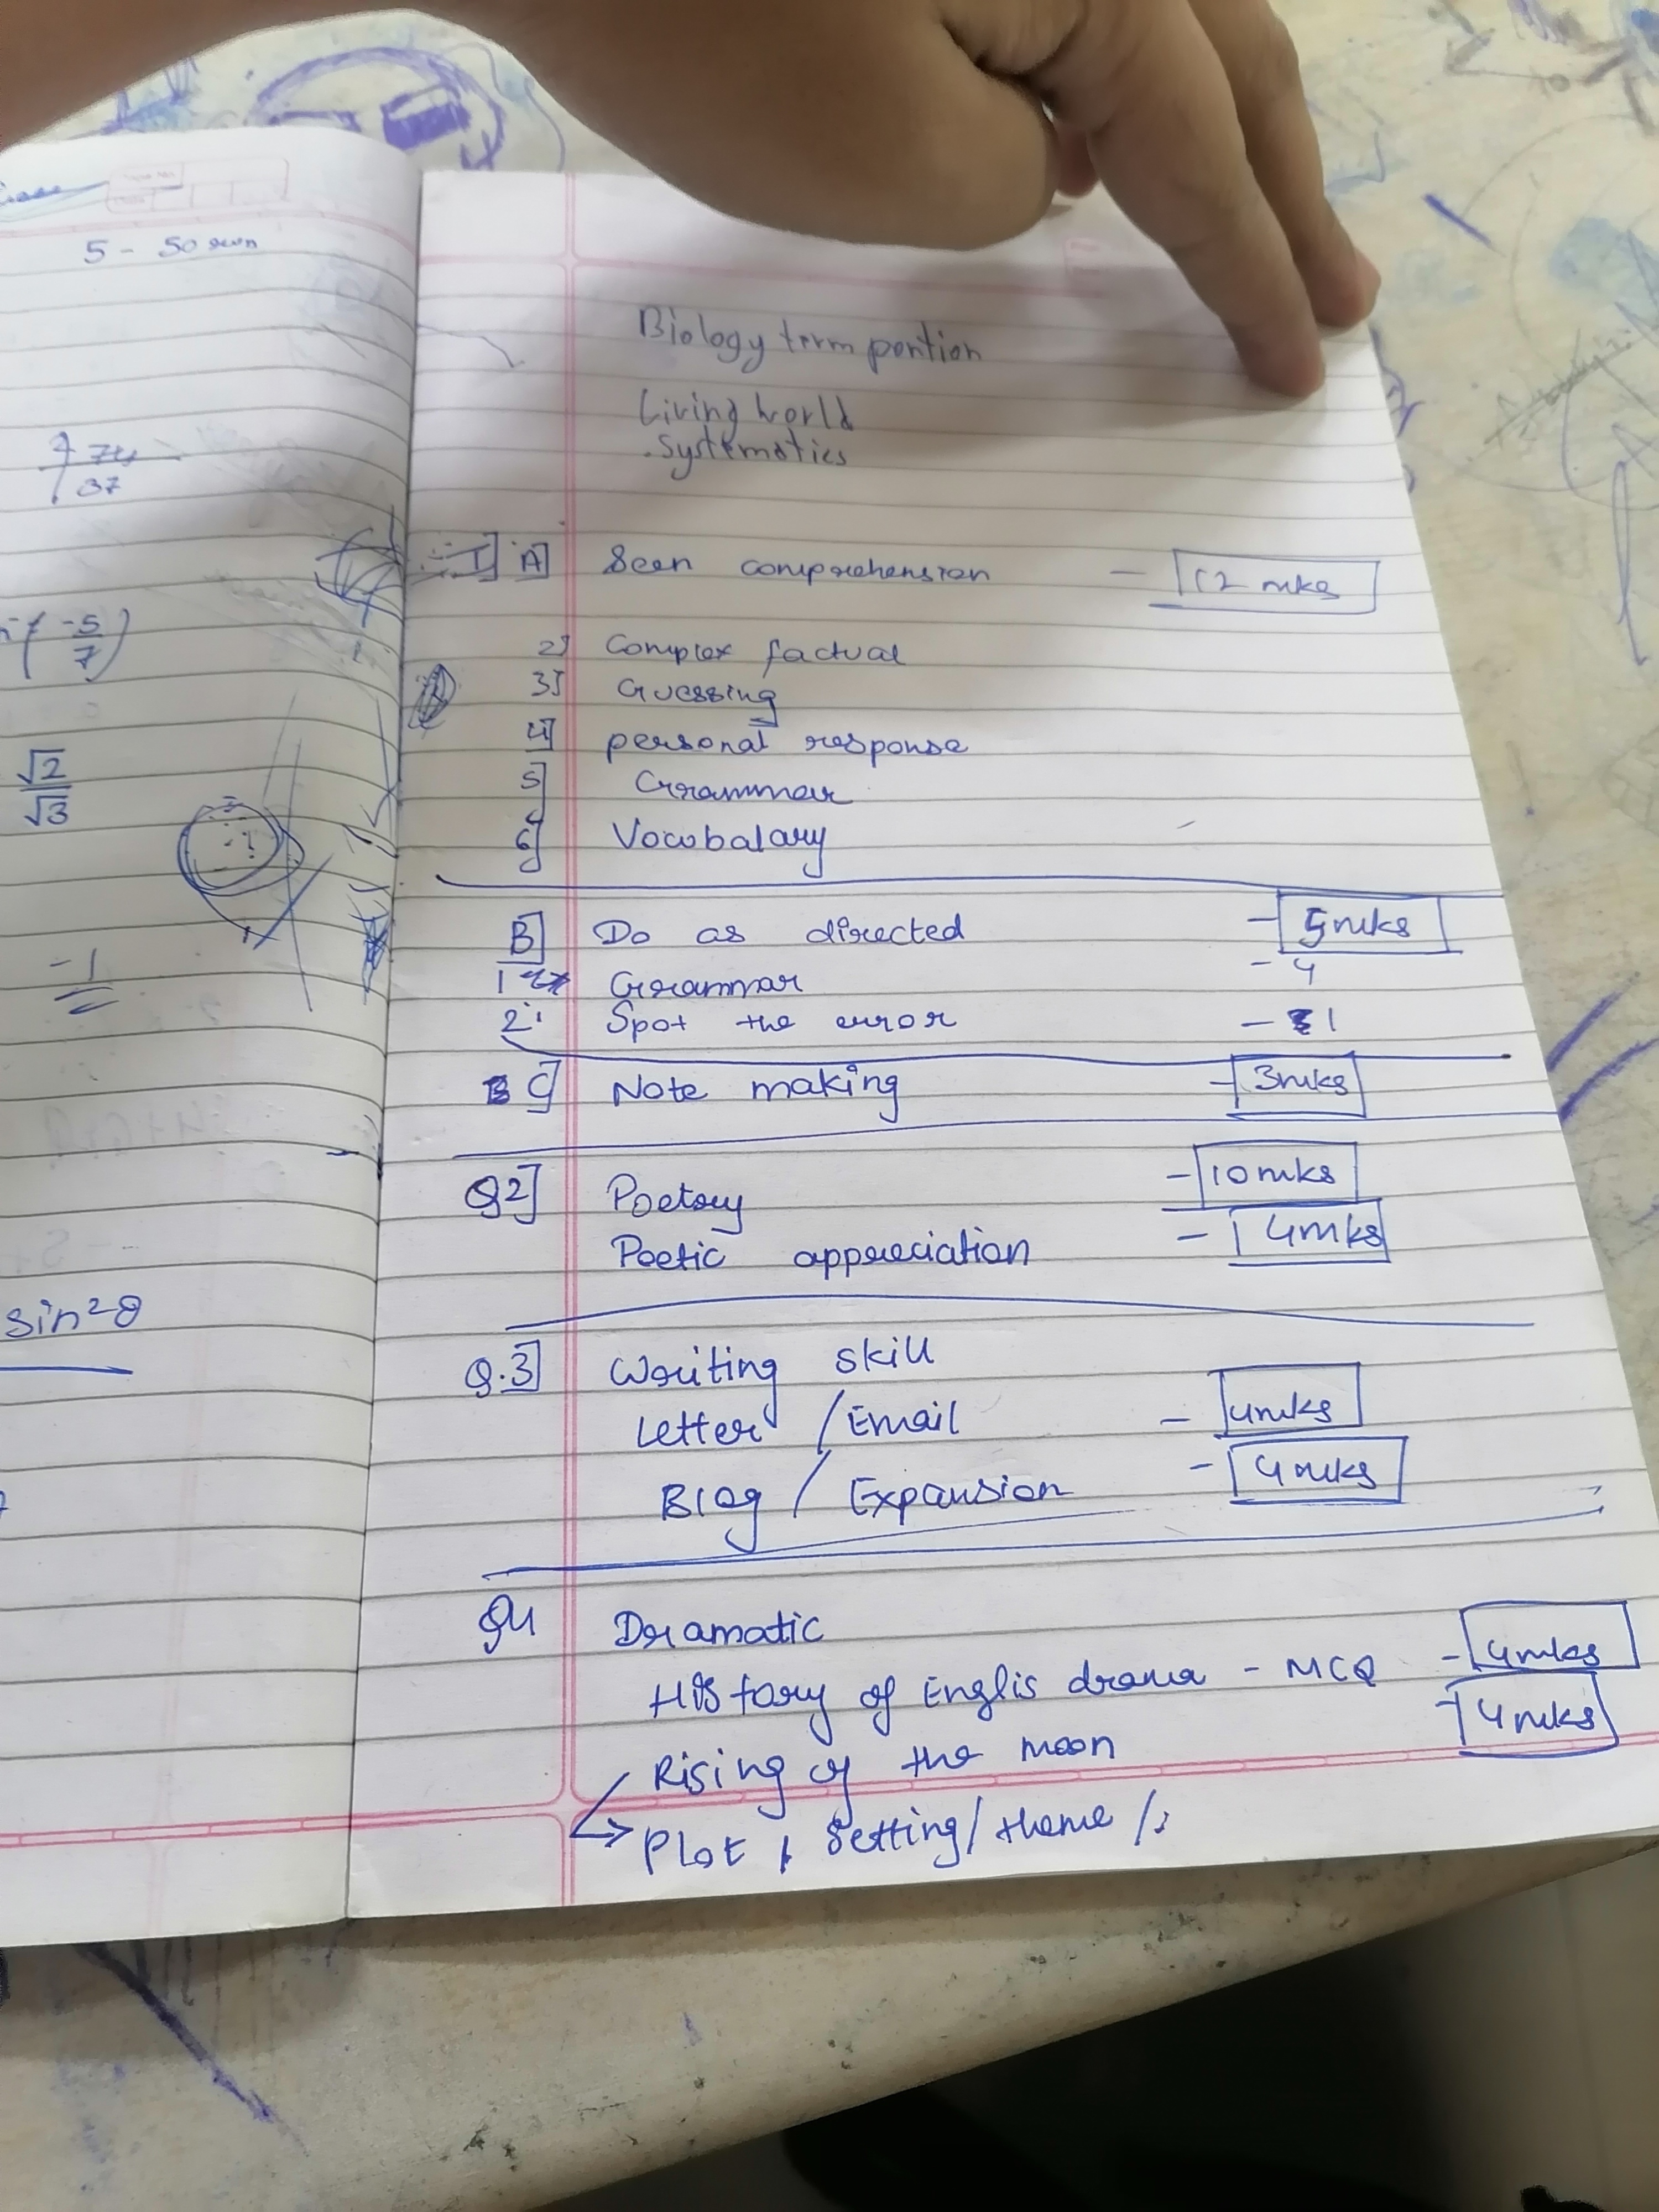 5 - 50 sum
7 74
37
-5
7
√2
√3
-1
sin²θ
Biology term portion
Living World
. Systematics
I] A] Seen comprehension - 12 mks
2] Complex factual
3] Guessing
4] personal response
5] Grammar
6] Vocobalary
B] Do as directed - 5mks
1 Grammar - 4
2. Spot the error - 1
C] Note making - 3mks
Q2] Poetry - 10 mks
Poetic appreciation - 4mks
Q.3] Writing skill
Letter / Email - 4mks
Blog / Expansion - 4mks
Q4 Dramatic
History of Englis drama - MCQ - 4mks
Rising of the moon - 4mks
→ Plot , Setting / theme /